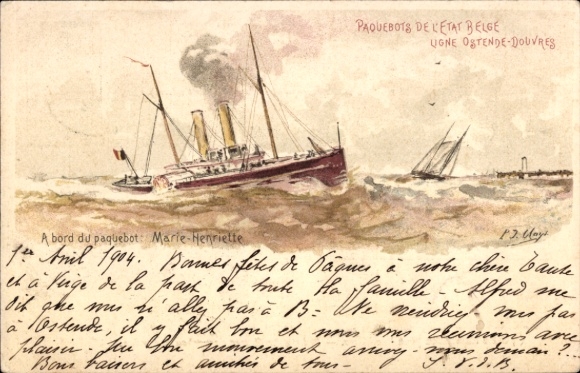 PAQUEBOTS DE L'ETAT BELGE
LIGNE OSTENDE-DOUVRES
A bord du paquebot: Marie-Henriette
1er Avril 1904. Bonnes fêtes de Pâques à notre chère Tante
et à de la part de toute la famille - Alfred me
dit que vous n'allez pas à B= Ne viendriez vous pas
à Ostende, il y fait bon et nous vous recevrions avec
plaisir. Un bon mouvement arrivez-nous demain??..
Bons baisers et amitiés de tous-